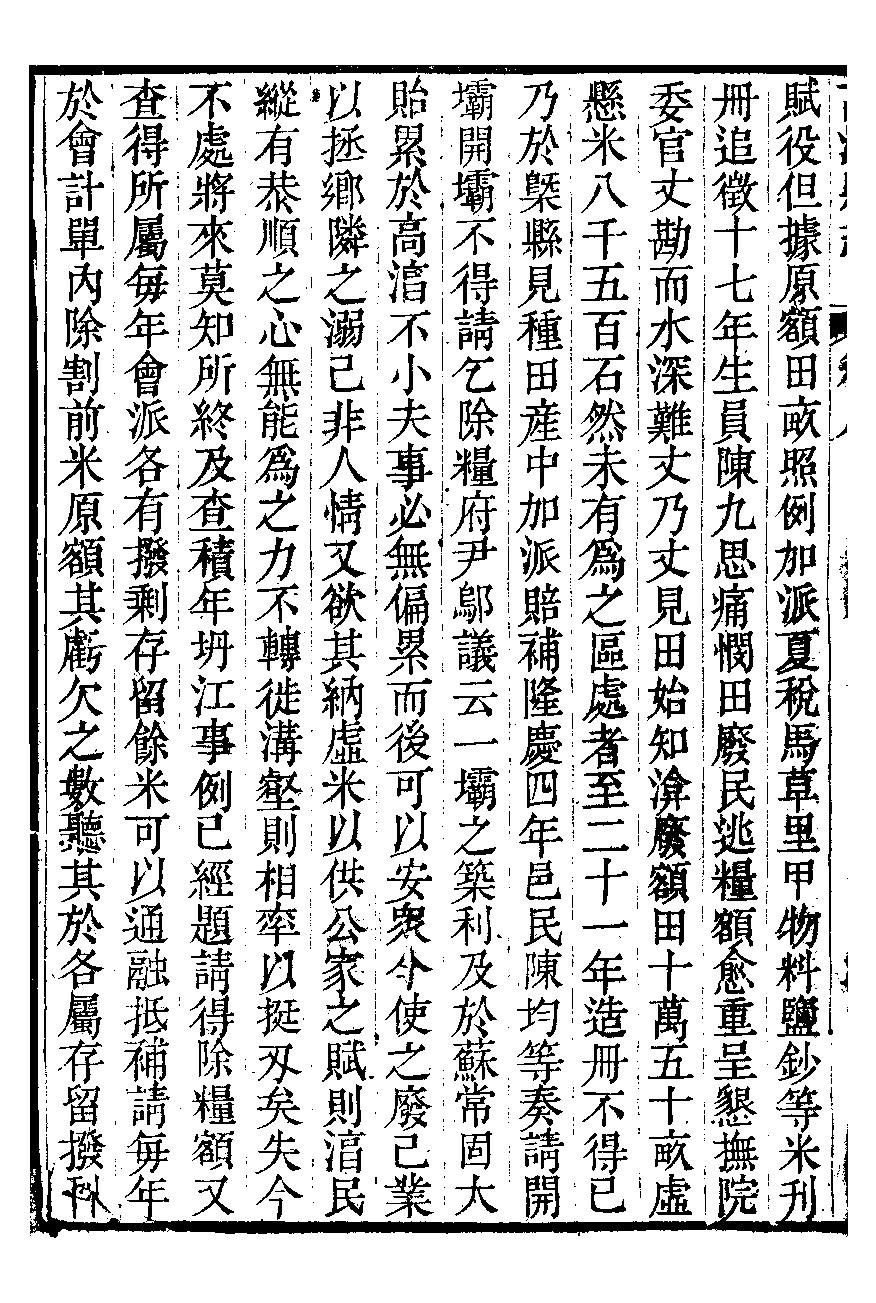 賦役但據原額田畝照例加派夏稅馬草里甲物料鹽鈔等米刋
冊追徵十七年生員陳九思痛憫田廢民逃糧額愈重呈懇撫院
委官丈勘而水深難丈乃丈見田始知渰廢額田十萬五十畝虛
懸米八千五百石然未有爲之區處者至二十一年造冊不得已
乃於槩縣見種田產中加派賠補隆慶四年邑民陳均等奏請開
壩開壩不得請乞除糧府尹鄔議云一壩之築利及於蘇常固大
貽累於高湻不小夫事必無偏累而後可以安衆今使之廢己業
以拯鄉隣之溺已非人情又欲其納虛米以供公家之賦則湻民
縱有恭順之心無能爲之力不轉徙溝壑則相率以挺刄矣失今
不處將來莫知所終及查積年坍江事例已經題請得除糧額又
查得所屬每年會派各有撥剩存留餘米可以通融抵補請每年
於會計單內除割前米原額其虧欠之數聽其於各屬存留撥